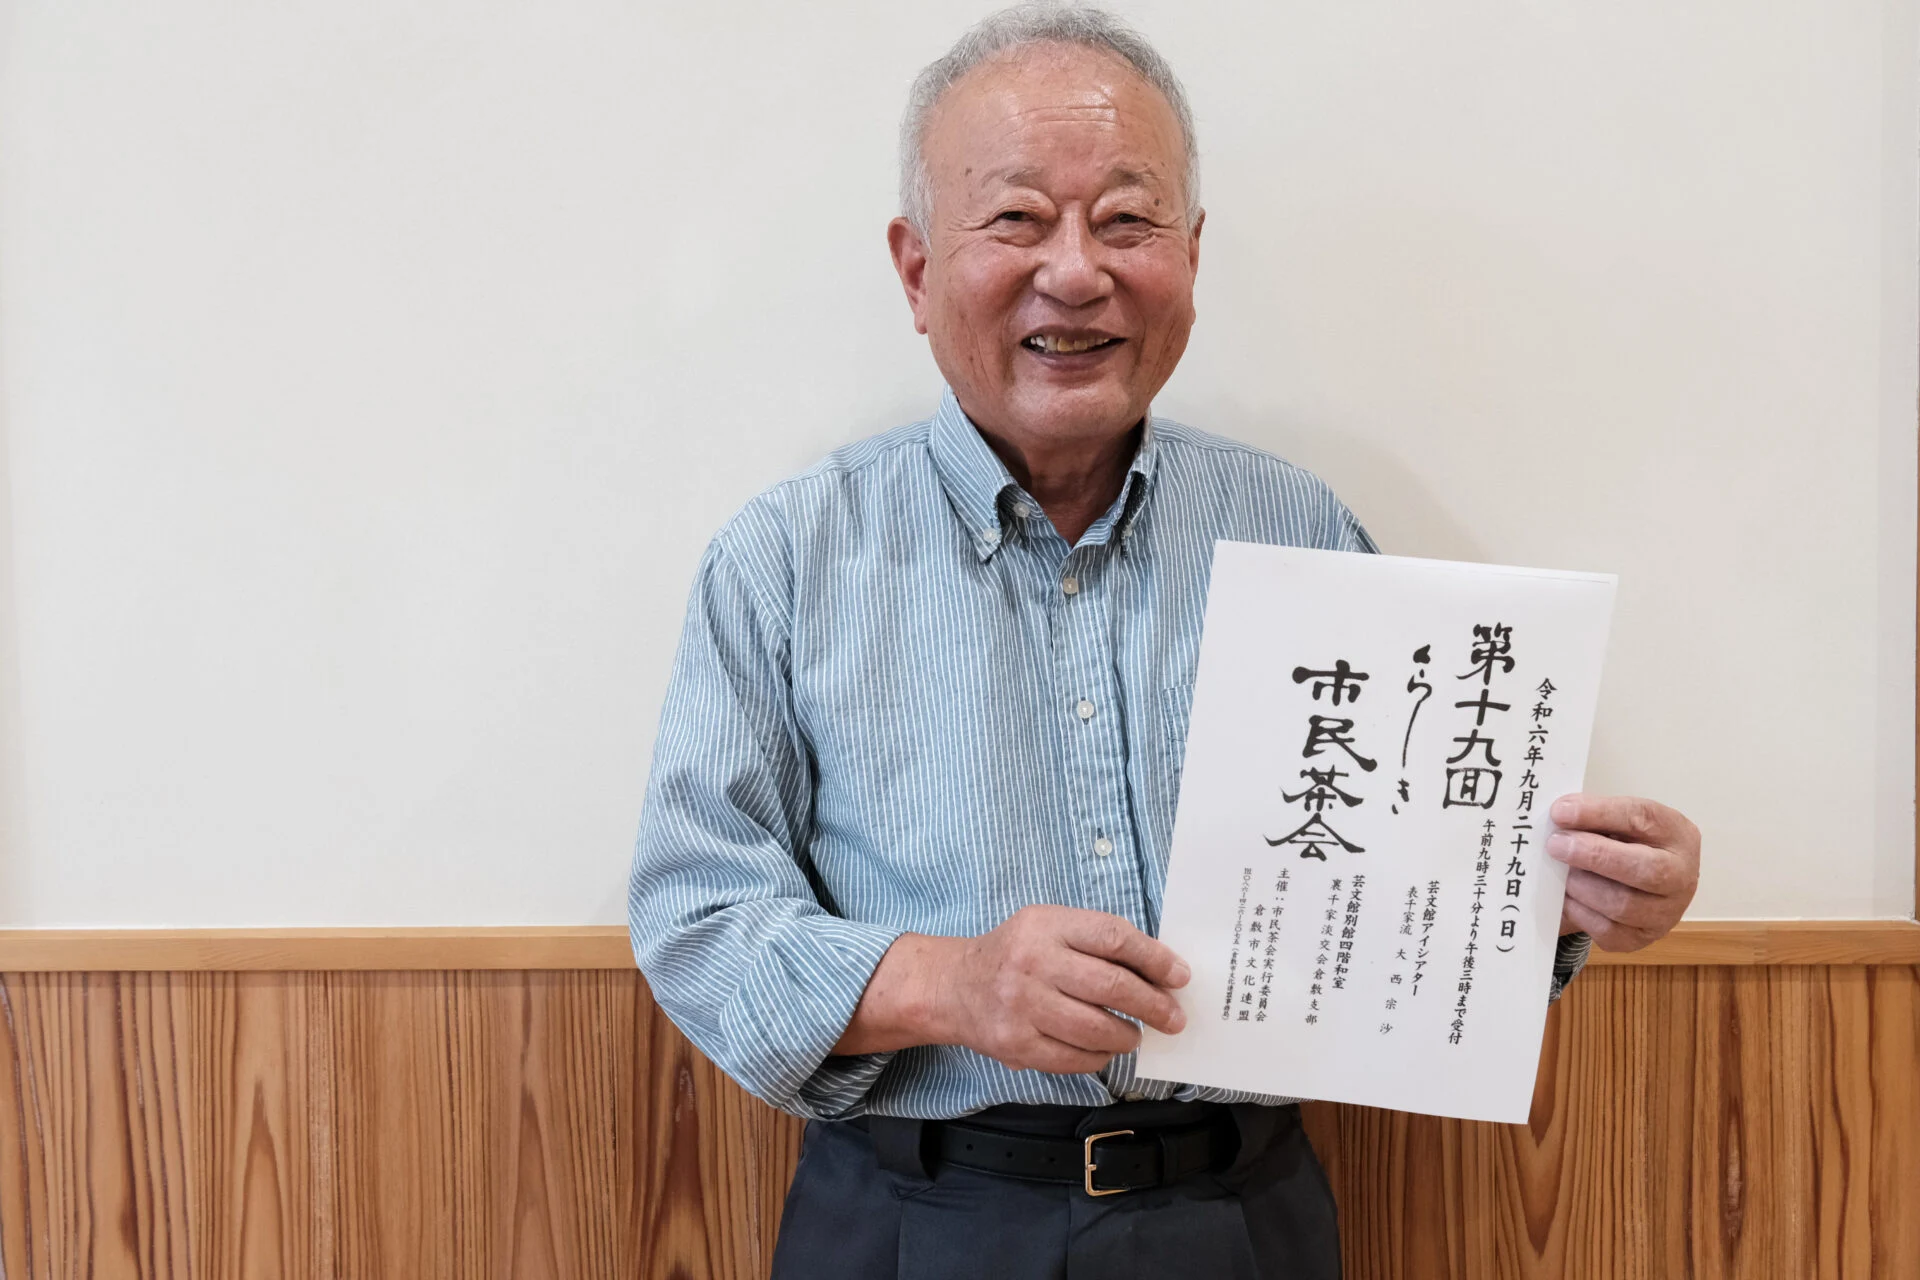 令和六年九月二十九日(日)
午前九時三十分より午後三時まで受付
第十九回
くらしき
市民茶会
芸文館アイシアター
表千家流 大西宗沙
芸文館別館四階和室
裏千家淡交会倉敷支部
主催:市民茶会実行委員会
倉敷市文化連盟
☎〇八六ー四二六ー三〇七五(倉敷市文化連盟事務局)